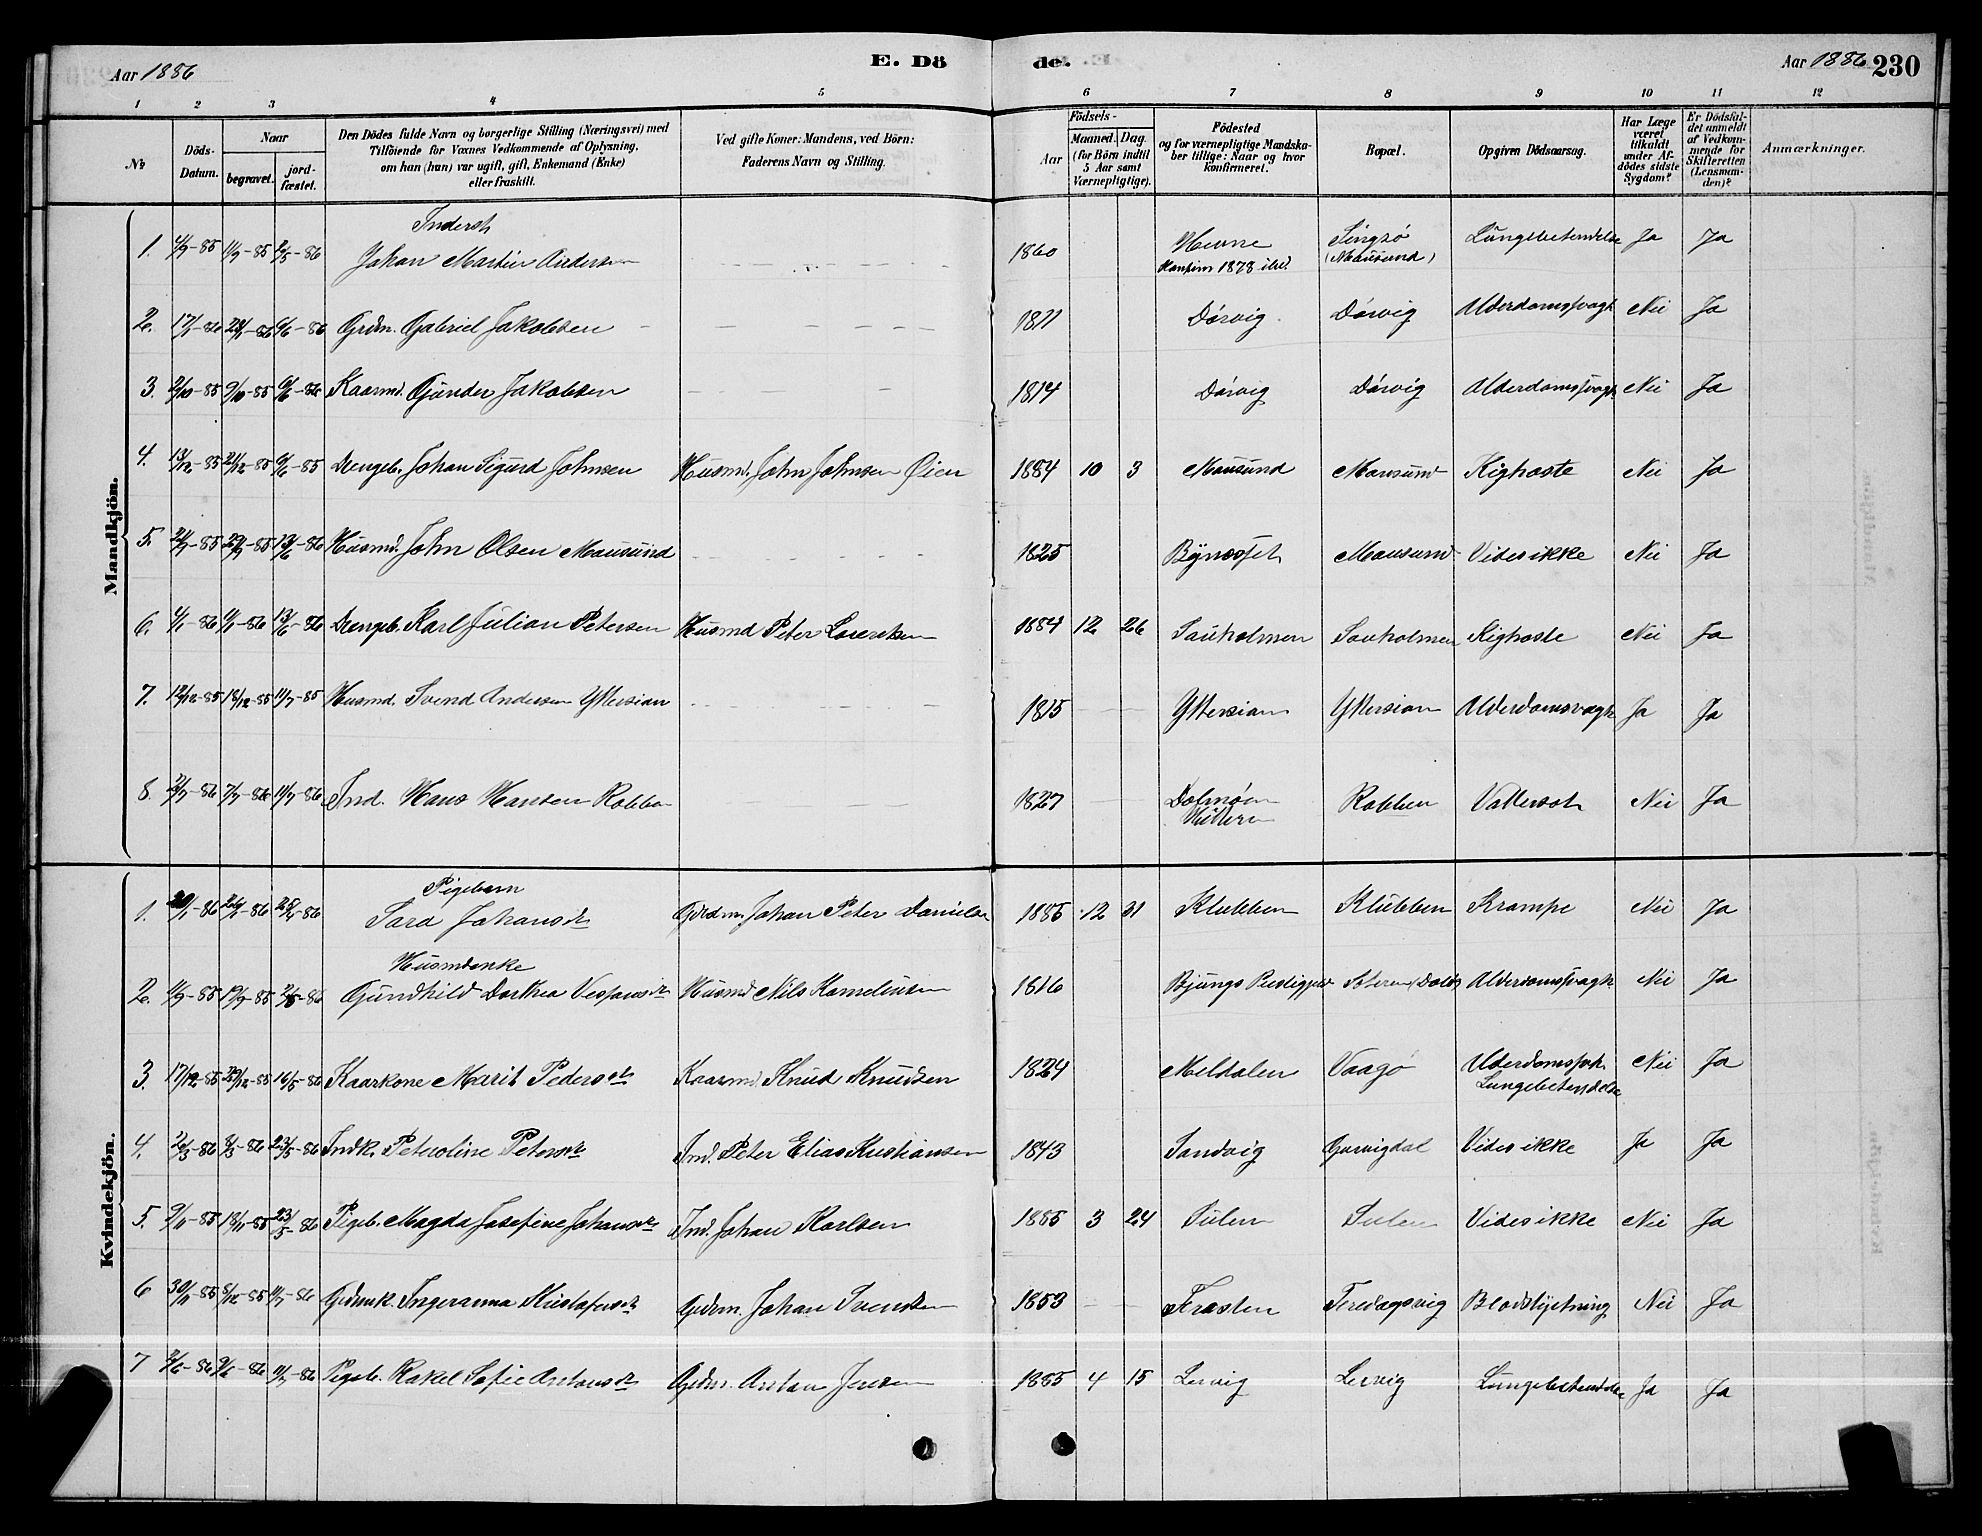 Aar 1886
E. Döde.
Aar 1886 230
1 2 3 4 5 6 7 8 9 10 11 12
No
Döds-Datum.
Naar
begravet.
jordfæstet.
Den Dödes fulde Navn og borgerlige Stilling (Næringsvei) med
Tilföiende for Voxnes Vedkommende af Oplysning,
om han (hun) var ugift, gift, Enkemand (Enke)
eller fraskilt.
Ved gifte Koner: Mandens, ved Börn:
Faderens Navn og Stilling.
Födsels-
Aar
Maaned. Dag.
(for Börn indtil
5 Aar samt
Værnepligtige).
Födested
og for værnepligtige Mandska-
ber tillige: Naar og hvor
konfirmeret.
Bopæl.
Opgiven Dödsaarsag.
Har Læge
været
tilkaldt
under Af-
dödes sidste
Sygdom?
Er Dödsfal-
det anmeldt
af Vedkom-
mende for
Skifteretten
(Lensman-
den)?
Anmærkninger.
Mandkjön.
Inderst
1. 4/9-85 11/9-85 -86 Johan Martin Andersen 1860 Hevne Singsö Lungebetendelse Ja Ja
Konfirm 1878 (Mausund)
2. 17/-86 -86 6/6-86 Grdm. Gabriel Jakobsen 1811 Dörvig Dörvig Alderdomssvagh Nei Ja
3. 2/10-85 9/10-85 6/6-86 Kaarmd. Gunder Jakobsen 1814 Dörvig Dörvig Alderdomssvagh Nei Ja
4. 13/12-85 21/12-85 6/6-85 Drengeb. Johan Sigurd Johnsen Husmd. John Johnsen Öien 1884 10 3 Mausund Mausund Kighoste Nei Ja
5. -85 -85 13/6-86 Husmd. John Olsen Mausund 1825 Bynæsset Mausund Vides ikke Nei Ja
6. 4/1-86 -86 13/6-86 Drengeb. Karl Julian Petersen Husmd Peter Lorentsen 1884 12 26 Sauholmen Sauholmen Kighoste Nei Ja
7. 12/12-85 18/12-85 11/7-85 Husmd. Svend Andersen Yttersian 1815 Yttersian Yttersian Alderdomsvagh Ja Ja
8. 2/7-86 7/7-86 11/7-86 Ind. Hans Hansen Robben 1827 Dolmöen Robben Vattersot Nei Ja
Hittern
Kvindekjön.
Pigebarn
1. -86 -86 -86 Sara Johansdt Grdm. Johan Peter Danielsen 1885 12 31 Klubben Klubben Krampe Nei Ja
Husmdenke
2. 11/9-85 19/9-85 -86 Gundhild Dorthea Husmd Nils Korneliusen 1816 Bjungs Alderdomssvagh. Nei Ja
3. 17/12-85 29/12-85 16/5-86 Kaarkone Marit Pedersdt Kaarmd. Knud Knudsen 1824 Meldalen Vaagö Alderdomssvh. Nei Ja
Lungebetendelse
4. 2/3-86 8/3-86 23/5-86 Indk. Peteroline Petersdt Ind. Peter Elias Kristiansen 1843 Sandvig Gurvigdal Vides ikke Ja Ja
5. 9/11-85 18/11-85 23/5-86 Pigeb. Magda Josefine Johansdt Ind. Johan Karlsen 1885 3 24 Sulen Sulen Vides ikke Nei Ja
6 30/11-85 8/12-85 11/7-86 Grdmk. Ingeranna Kristofersdt Grdm. Johan Svendsen 1853 Frosten Nei Ja
7 2/6-86 9/6-86 11/7-86 Pigeb. Rakel Sofie Antonsdt Grdm. Anton Jensen 1885 4 15 Lervig Lervig Lungebetendelse Ja Ja